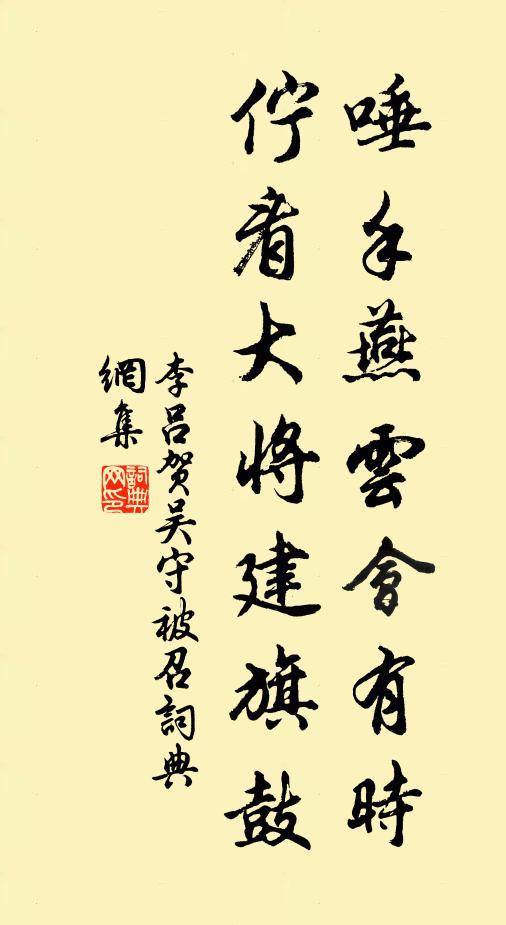 唾手燕雲會有時
佇看大將建旗鼓
李呂賀吳守被召詞典
網集
詞典
网印